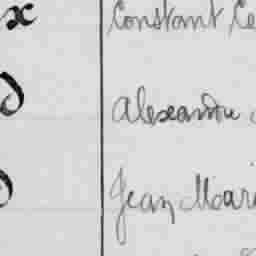 x Constant Ce
d Alexandre
d Jean Mari